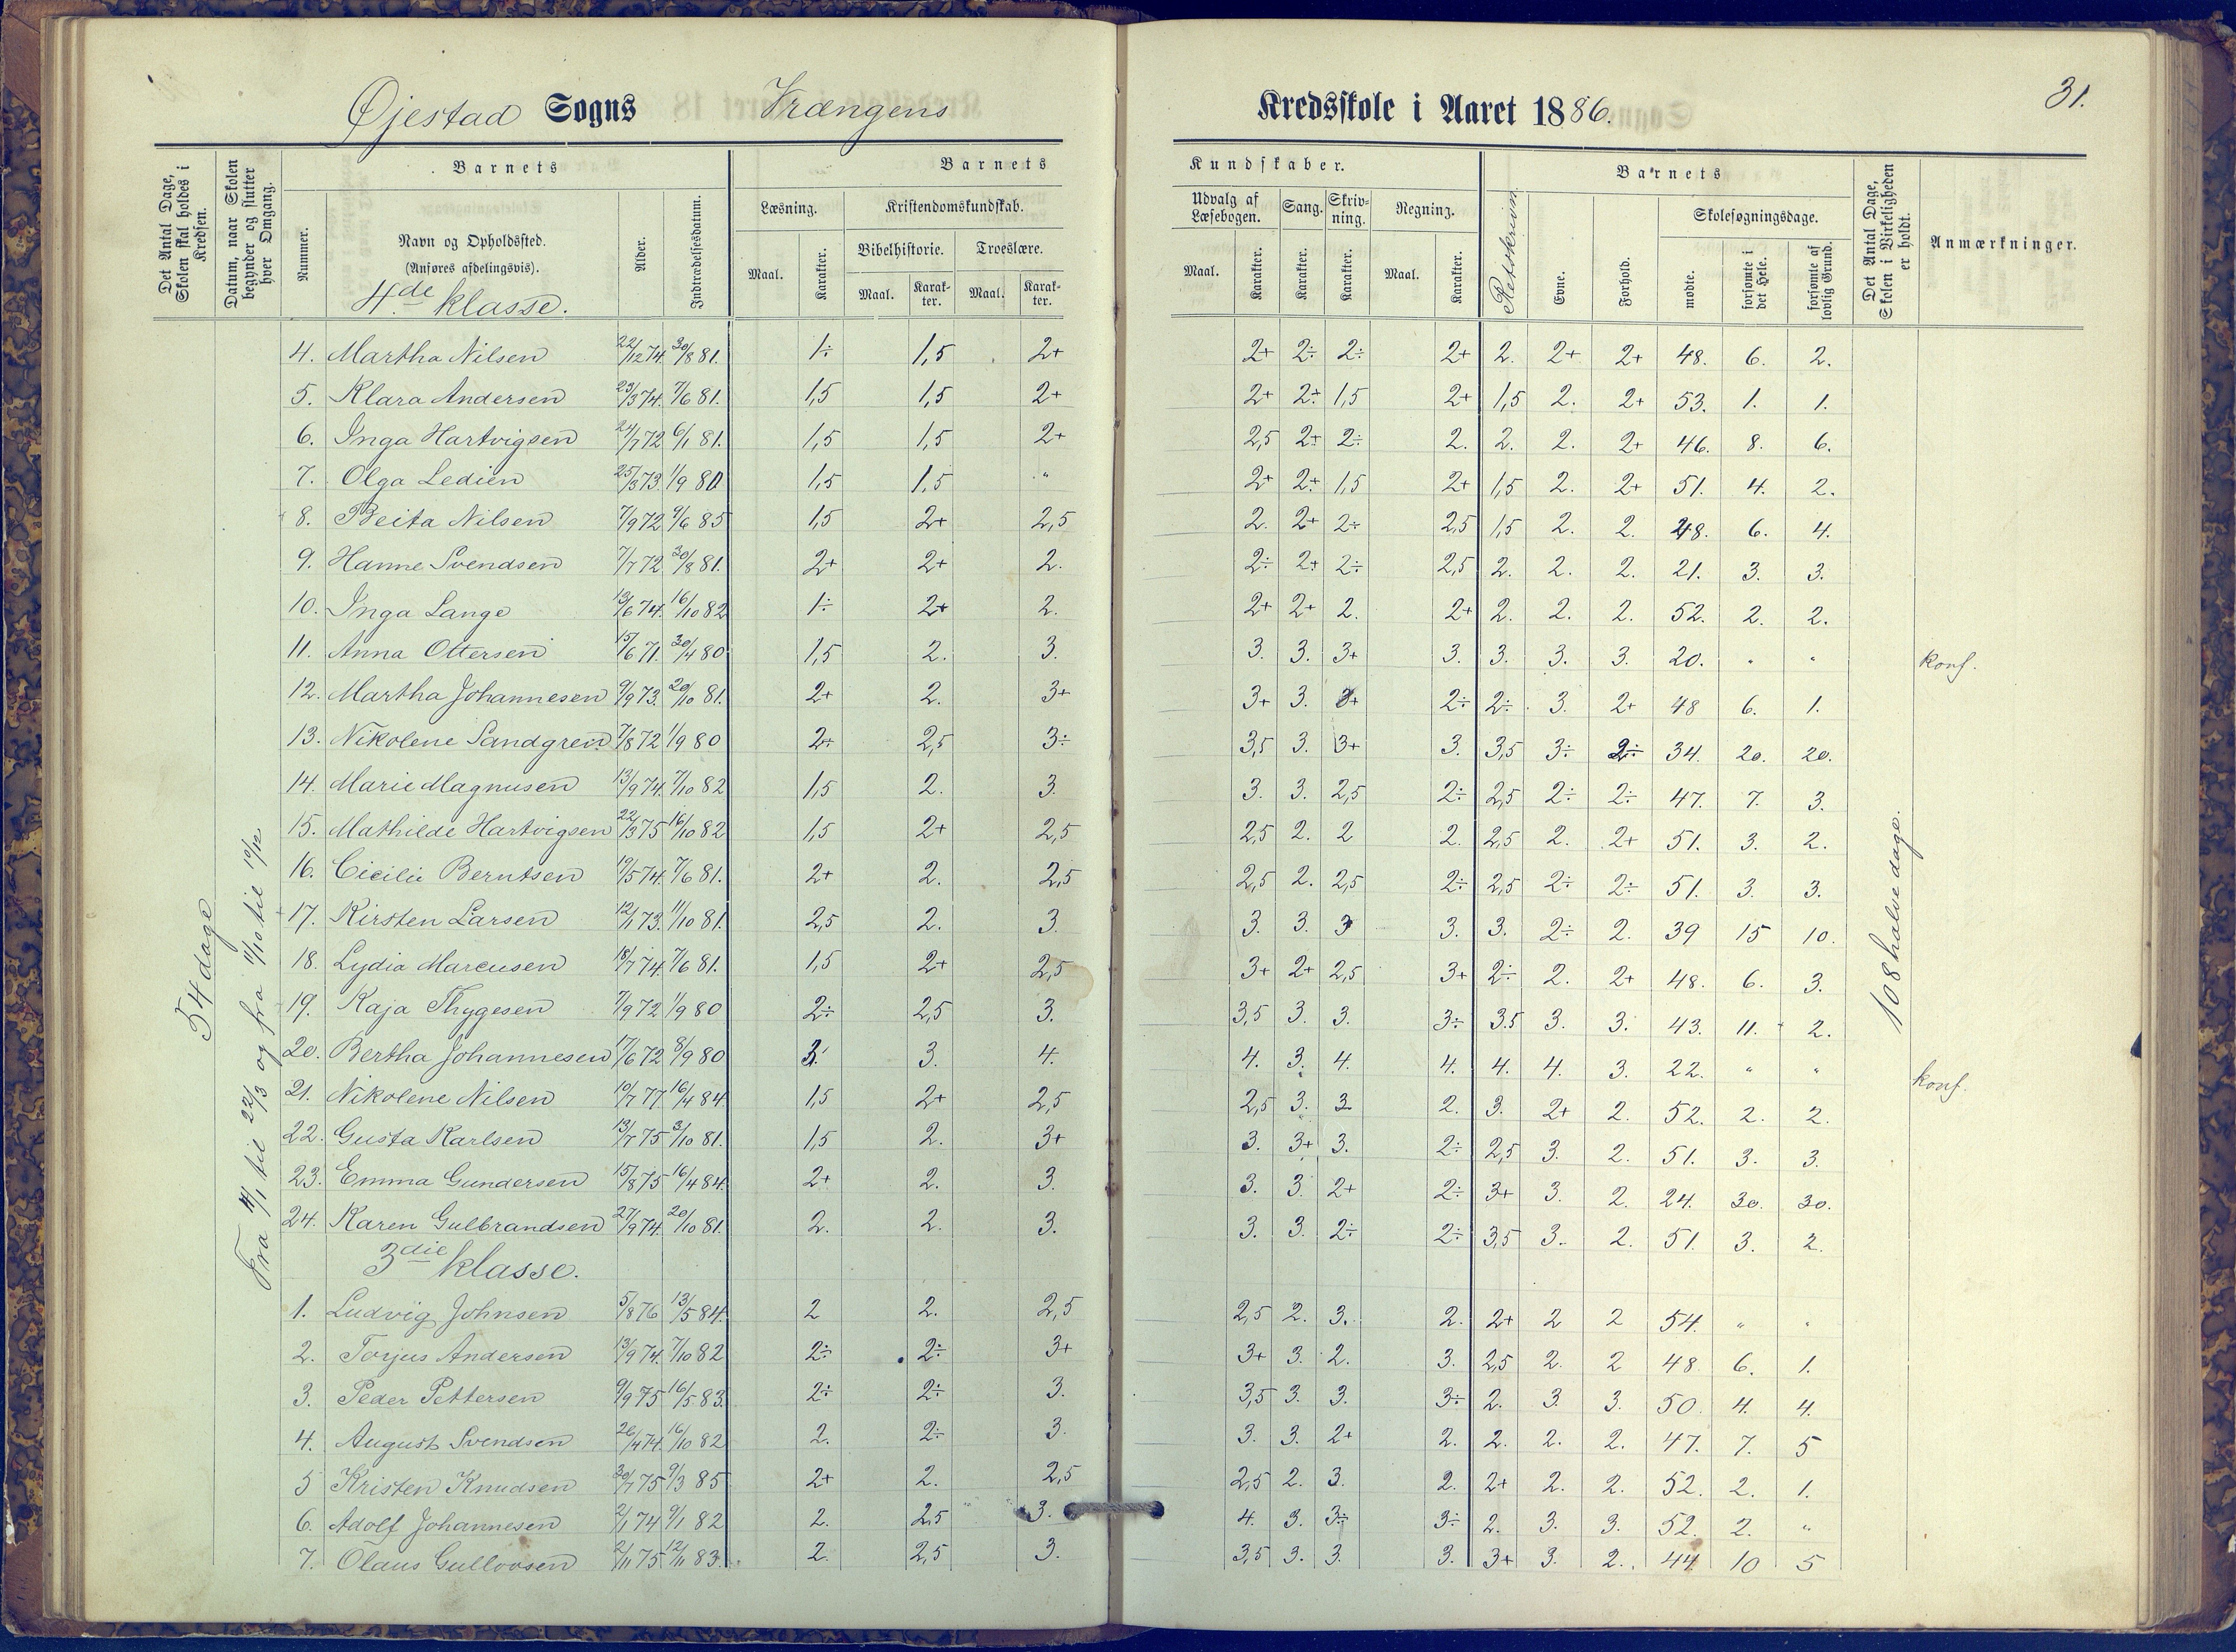 Øjestad Sogns Vrængens Kredsskole i Aaret 1886. 31.
Det Antal Dage, Skolen skal holdes i Kredsen.
Datum, naar Skolen begynder og slutter hver Omgang.
Barnets
Nummer.
Navn og Opholdssted.
(Anføres afdelingsvis).
4de klasse.
Alder.
Indtrædelsesdatum.
Barnets Kundskaber.
Læsning.
Maal. Karakter.
Kristendomskundskab.
Bibelhistorie. Troeslære.
Maal. Karakter. Maal. Karakter.
Udvalg af Læsebogen. Sang. Skrivning. Regning.
Maal. Karakter. Karakter. Karakter. Maal. Karakter.
Retskrivn.
Barnets
Evne. Forhold.
Skolesøgningsdage.
mødte. forsømte i det Hele. forsømte af lovlig Grund.
Det Antal Dage, Skolen i Virkeligheden er holdt.
Anmærkninger.
54 dage
Fra 11/1 til 22/3 og fra 11/10 til 10/12
108 halve dage.
4. Martha Nilsen 22/12 74. 30/8 81. 1÷ 1,5 2+ 2+ 2÷ 2÷ 2+ 2. 2+ 2+ 48. 6. 2.
5. Klara Andersen 23/3 74. 7/6 81. 1,5 1,5 2+ 2+ 2+ 1,5 2+ 1,5 2. 2+ 53. 1. 1.
6. Inga Hartvigsen 24/7 72 6/1 81. 1,5 1,5 2+ 2,5 2+ 2÷ 2. 2. 2. 2+ 46. 8. 6.
7. Olga Ledien 25/3 73. 1/9 80 1,5 1,5 " 2+ 2+ 1,5 2+ 1,5 2. 2+ 51. 4. 2.
8. Beita Nilsen 7/9 72. 9/6 85 1,5 2+ 2,5 2. 2+ 2÷ 2,5 1,5 2. 2. 48. 6. 4.
9. Hanne Svendsen 7/7 72 30/8 81. 2+ 2+ 2. 2÷ 2+ 2÷ 2,5 2. 2. 2. 21. 3. 3.
10. Inga Lange 13/6 74. 16/10 82 1÷ 2+ 2. 2+ 2+ 2. 2+ 2. 2. 2. 52. 2. 2.
11. Anna Ottersen 15/6 71. 30/4 80 1,5 2. 3. 3. 3. 3+ 3. 3. 3. 3. 20. " " konf.
12. Martha Johannesen 9/9 73. 20/10 81. 2+ 2. 3+ 3+ 3. 3+ 2÷ 2÷ 3. 2+ 48 6. 1.
13. Nikolene Sandgren 7/8 72 1/9 80 2÷ 2,5 3÷ 3,5 3. 3+ 3. 3,5 3÷ 2÷ 34. 20. 20.
14. Marie Magnusen 13/9 74. 7/10 82 1,5 2. 3. 3. 3. 2,5 2÷ 2,5 2÷ 2÷ 47. 7. 3.
15. Mathilde Hartvigsen 22/3 75 16/10 82 1,5 2+ 2,5 2,5 2. 2 2. 2,5 2. 2+ 51. 3. 2.
16. Cicilie Berntsen 19/5 74. 7/6 81. 2+ 2. 2,5 2,5 2. 2,5 2÷ 2,5 2÷ 2÷ 51. 3. 3.
17. Kirsten Larsen 12/1 73. 11/10 81. 2,5 2. 3. 3. 3. 3 3. 3. 2÷ 2. 39 15 10.
18. Lydia Marcusen 18/7 74. 7/6 81. 1,5 2+ 2,5 3+ 2+ 2,5 3+ 2÷ 2. 2+ 48. 6. 3.
19. Kaja Thygesen 7/9 72 1/9 80 2÷ 2,5 3. 3,5 3. 3. 3÷ 3.5 3. 3. 43. 11. 2.
20. Bertha Johannesen 17/6 72 8/9 80 3. 3. 4. 4. 3. 4. 4. 4. 4. 3. 22. " " konf.
21. Nikolene Nilsen 10/7 77. 16/4 84. 1,5 2+ 2,5 2,5 3. 3. 2. 3. 2+ 2. 52. 2. 2.
22. Gusta Karlsen 13/7 75 3/10 81. 1,5 2. 3+ 3. 3+ 3. 2÷ 2,5 3. 2. 51. 3. 3.
23. Emma Gundersen 15/8 75 16/4 84. 2+ 2. 3. 3. 3. 2+ 2÷ 3+ 3. 2. 24. 30. 30.
24. Karen Gulbrandsen 27/9 74. 20/10 81. 2. 2. 3. 3. 3. 2÷ 2÷ 3,5 3. 2. 51. 3. 2.
3die klasse.
1. Ludvig Johnsen 5/8 76 13/5 84. 2 2. 2,5 2,5 2. 3. 2. 2+ 2 2 54. " "
2. Torjus Andersen 13/9 74. 7/10 82 2÷ 2÷ 3+ 3+ 3. 2. 3. 2,5 2. 2 48. 6. 1.
3. Peder Pettersen 9/9 75 16/5 83. 2÷ 2÷ 3. 3,5 3. 3. 3÷ 2. 3. 3. 50. 4. 4.
4. August Svendsen 26/4 74. 16/10 82 2. 2÷ 3. 3. 3. 2+ 2. 2. 2. 2. 47. 7. 5
5 Kristen Knudsen 30/7 75 9/3 85 2+ 2. 2,5 2,5 2. 3. 2. 2+ 2. 2. 52. 2. 1.
6. Adolf Johannesen 2/1 74 9/1 82 2. 2,5 3. 4. 3. 3÷ 3÷ 2. 3. 3. 52. 2. "
7. Olaus Gullovsen 2/11 75 12/11 83. 2. 2,5 3. 3,5 3. 3. 3. 3+ 3. 2. 44 10 5